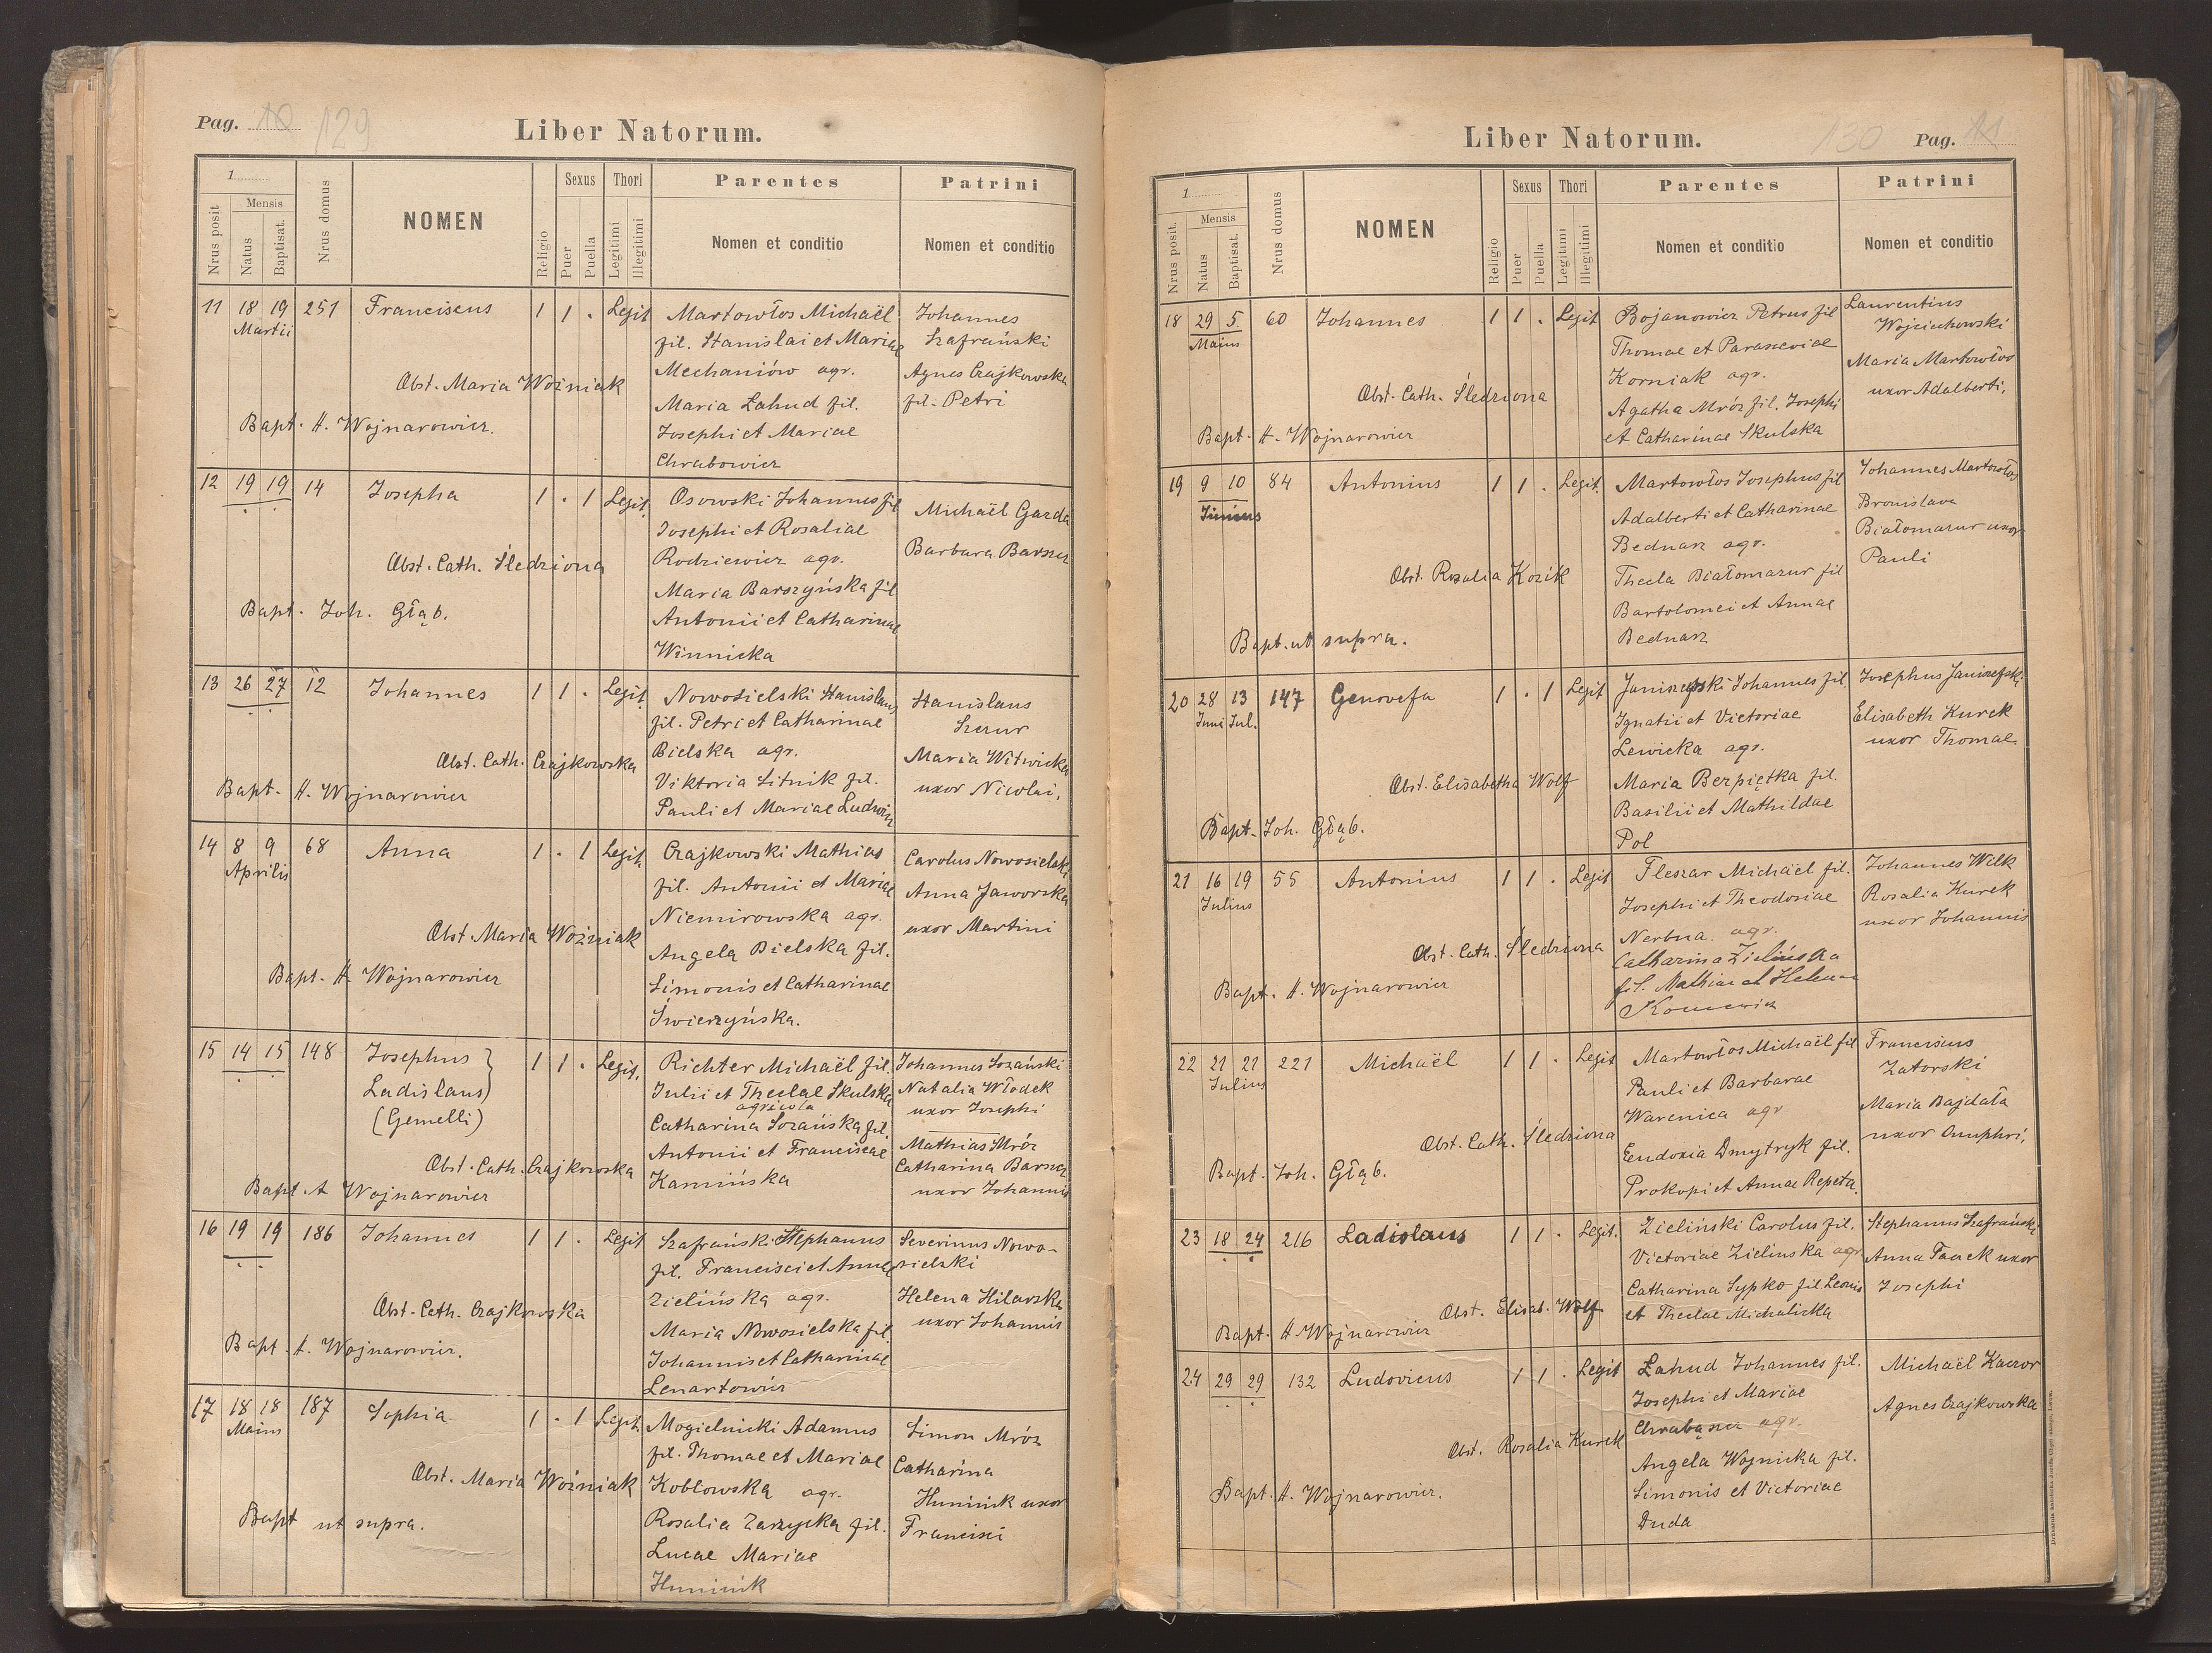 Pag. 10 129
Liber Natorum.
1
Nrus posit
Mensis
Natus
Baptisat.
Nrus domus
NOMEN
Religio
Sexus
Puer
Puella
Thori
Legitimi
Illegitimi
Parentes
Nomen et conditio
Patrini
Nomen et conditio
11 18 19 251 Franciscus 1 1 . Legit
Martii
Martowłos Michaël
fil. Stanislai et Mariae
Mechaniów agr.
Maria Lahud fil.
Josephi et Mariae
Chrabowicz
Johannes
Szafrański
Agnes Czajkowska
fil. Petri
Obst. Maria Woźniak
Bapt. A. Wojnarowicz.
12 19 19 14 Josepha 1 . 1 Legit.
Osowski Johannes fil
Josephi et Rosaliae
Rodziewicz agr.
Maria Barszyńska fil
Antonii et Catharinae
Winnicka
Michaël Gazda
Barbara Barszcz
Obst. Cath. Śledziona
Bapt. Joh. Głąb.
13 26 27 12 Johannes 1 1 . Legit.
Nowosielski Stanislaus
fil. Petri et Catharinae
Bielska agr.
Viktoria Sitnik fil.
Pauli et Mariae Ludwin
Stanislaus
Szczur
Maria Witwicka
uxor Nicolai.
Obst. Cath. Czajkowska
Bapt. A. Wojnarowicz
14 8 9 68 Anna 1 . 1 Legit.
Aprilis
Czajkowski Mathias
fil. Antonii et Mariae
Niemirowska agr.
Angela Bielska fil.
Simonis et Catharinae
Świerzyńska.
Carolus Nowosielski
Anna Jaworska
uxor Martini
Obst. Maria Woźniak
Bapt. A. Wojnarowicz
15 14 15 148 Josephus 1 1 . Legit.
Ladislaus
(Gemelli)
Richter Michaël fil.
Julii et Theclae Skulska
agricola
Catharina Sozańska fil.
Antonii et Franciscae
Kamińska
Johannes Sozański
Natalia Włodek
uxor Josephi
Mathias Mróz
Catharina Barszcz
uxor Johannis
Obst. Cath. Czajkowska
Bapt. A Wojnarowicz
16 19 19 186 Johannes 1 1 . Legit
Szafrański Stephanus
fil. Francisci et Annae
Zielińska agr.
Maria Nowosielska fil.
Johannis et Catharinae
Lenartowicz
Severinus Nowo-
sielski
Helena Hilarska
uxor Johannis
Obst. Cath. Czajkowska
Bapt. A. Wojnarowicz.
17 18 18 187 Sophia 1 . 1 Legit.
Maius
Mogielnicki Adamus
fil. Thomae et Mariae
Koblowska agr.
Rosalia Zarzycka fil.
Lucae Mariae
Huminik
Simon Mróz
Catharina
Huminik uxor
Francisci
Obst. Maria Woźniak
Bapt ut supra.
Liber Natorum.
130 Pag. 11
1
Nrus posit.
Mensis
Natus
Baptisat.
Nrus domus
NOMEN
Religio
Sexus
Puer
Puella
Thori
Legitimi
Illegitimi
Parentes
Nomen et conditio
Patrini
Nomen et conditio
18 29 5 60 Johannes 1 1 . Legit
Maius
Bojanowicz Petrus fil
Thomae et Parasceviae
Korniak agr.
Agatha Mróz fil. Josephi
et Catharinae Skulska
Laurentius
Wojciechowski
Maria Martowłos
uxor Adalberti.
Obst. Cath. Śledziona
Bapt. A. Wojnarowicz
19 9 10 84 Antonius 1 1 . Legit.
Junius
Martowłos Josephus fil
Adalberti et Catharinae
Bednarz agr.
Thecla Białomazur fil
Bartolomei et Annae
Bednarz
Johannes Martowłos
Bronislava
Białomazur uxor
Pauli
Obst. Rosalia Kozik
Bapt. ut supra.
20 28 13 147 Genovefa 1 . 1 Legit
Juni Jul.
Janiszewski Johannes fil.
Ignatii et Victoriae
Lewicka agr.
Maria Berpiętka fil.
Basilii et Mathildae
Pol
Josephus Janiszefski
Elisabeth Kurek
uxor Thomae.
Obst. Elisabetha Wolf
Bapt. Joh. Głąb.
21 16 19 55 Antonius 1 1 . Legit
Julius
Fleszar Michaël fil.
Josephi et Theodosiae
Nerbua. agr.
Catharina Zielińska
fil. Mathiae et Helenae
Johannes Wilk
Rosalia Kurek
uxor Johannis
Obst. Cath. Śledziona
Bapt. A. Wojnarowicz
22 21 21 221 Michaël 1 1 . Legit
Julius
Martowłos Michaël fil
Pauli et Barbarae
Warenica agr
Eudoxia Dmytryk fil.
Prokopi et Annae Repeta.
Franciscus
Zatorski
Maria Bajdała
uxor Onuphri.
Obst. Cath. Śledziona
Bapt. Joh. Głąb.
23 18 24 216 Ladislaus 1 1 . Legit.
Zieliński Carolus fil.
Victoriae Zielinska agr
Catharina Sypko fil Leonis
et Theclae Michalicka
Stephanus Szafrański
Anna uxor
Josephi
Obst. Elisab. Wolf
Bapt. A. Wojnarowicz
24 29 29 132 Ludovicus 1 1 . Legit
Lahud Johannes fil.
Josephi et Mariae
Chrabąszcz agr.
Angela Wojnicka fil.
Simonis et Victoriae
Duda
Michaël Kaczor
Agnes Czajkowska
Obst. Rosalia Kurek
Bapt. A. Wojnarowicz.